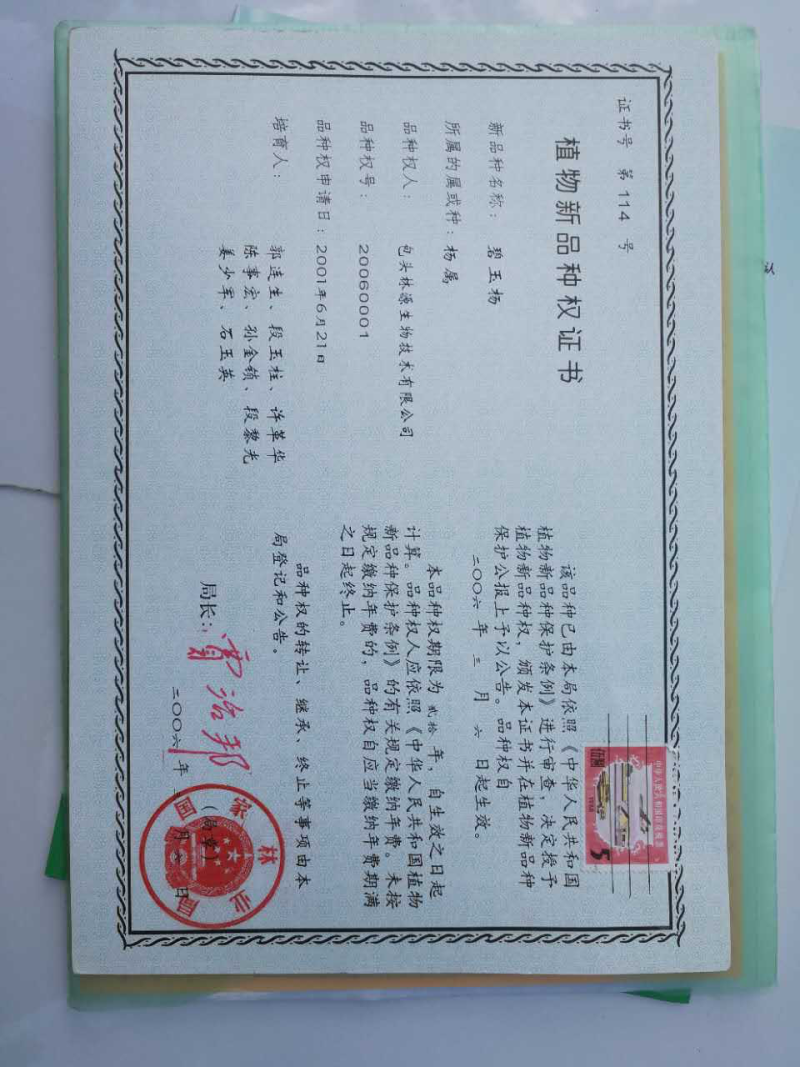 证书号 第 114 号
植物新品种权证书
新品种名称: 碧玉杨
所属的属或种: 杨属
品种权人: 包头林源生物技术有限公司
品种权号: 20060001
品种权申请日: 2001年6月21日
培育人: 郭连生、段玉柱、许革华
陈事宏、孙金锁、段黎光
姜少军、石玉英
该品种已由本局依照《中华人民共和国
植物新品种保护条例》进行审查,决定授予
植物新品种权,颁发本证书并在植物新品种
保护公报上予以公告。品种权自
二〇〇六 年 三 月 六 日起生效。
本品种权期限为 贰拾 年,自生效之日起
计算。品种权人应依照《中华人民共和国植物
新品种保护条例》的有关规定缴纳年费。未按
规定缴纳年费的,品种权自应当缴纳年费期满
之日起终止。
品种权的转让、继承、终止等事项由本
局登记和公告。
局长: 贾治邦
(局章)
二〇〇六 年 月 日
国家林业局
中华人民共和国印花税票
伍圆
5